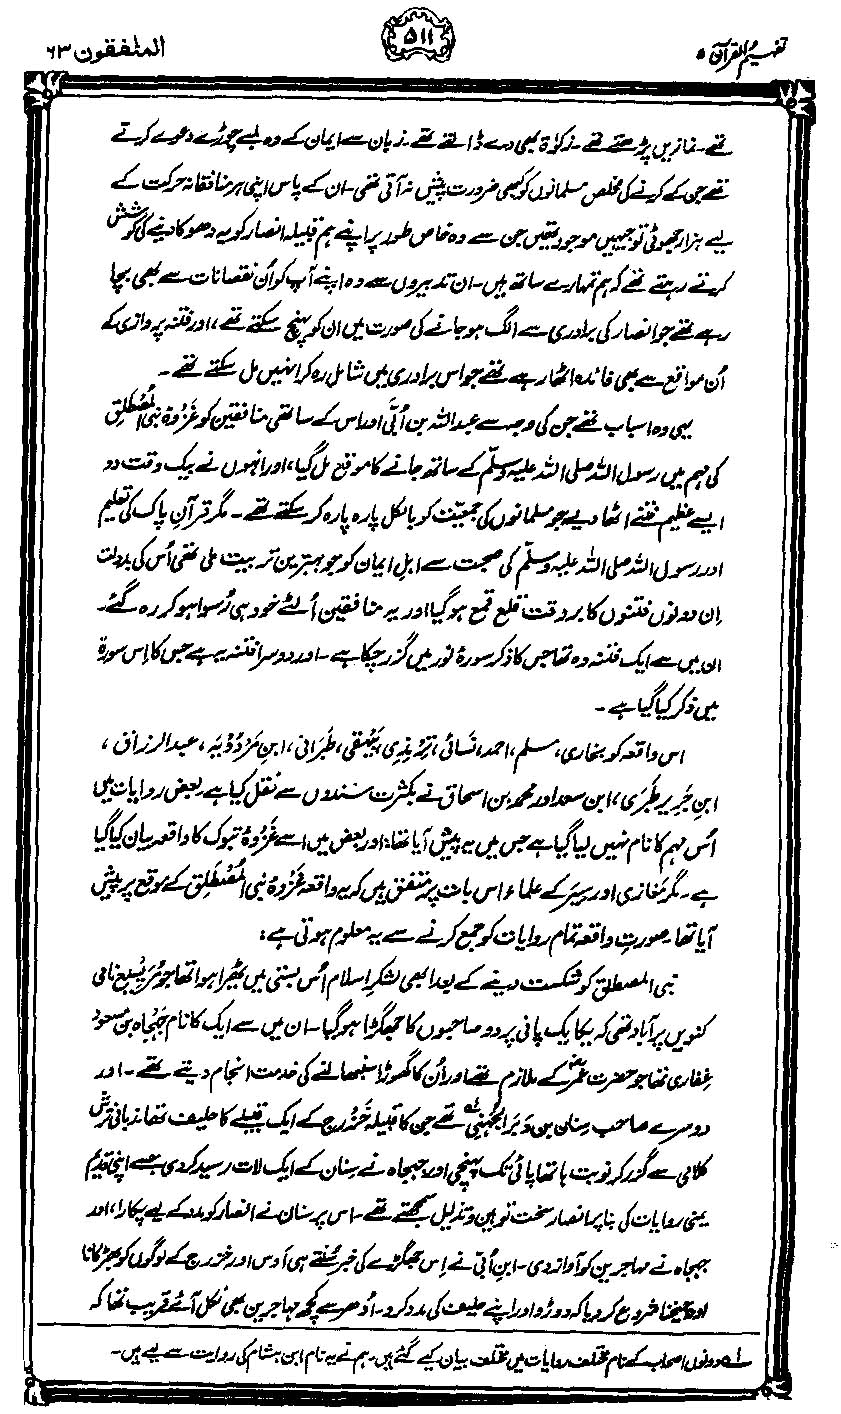 تفہیم القرآن ۵
۵۱۱
المنٰفقون ۶۳
تھے۔ نمازیں پڑھتے تھے۔ زکوٰۃ بھی دے ڈالتے تھے۔ زبان سے ایمان کے وہ لمبے چوڑے دعوے کرتے
تھے جن کے کرنے کی مخلص مسلمانوں کو کبھی ضرورت پیش نہ آتی تھی۔ ان کے پاس اپنی ہر منافقانہ حرکت کے
لیے ہزار جھوٹی توجیہیں موجود تھیں جن سے وہ خاص طور پر اپنے ہم قبیلہ انصار کو یہ دھوکا دینے کی کوشش
کرتے رہتے تھے کہ ہم تمہارے ساتھ ہیں۔ ان تدبیروں سے وہ اپنے آپ کو اُن نقصانات سے بھی بچا
رہے تھے جو انصار کی برادری سے الگ ہو جانے کی صورت میں ان کو پہنچ سکتے تھے، اور فتنہ پردازی کے
اُن مواقع سے بھی فائدہ اٹھا رہے تھے جو اس برادری میں شامل رہ کر انہیں مل سکتے تھے۔
یہی وہ اسباب تھے جن کی وجہ سے عبداللہ بن اُبَیّ اور اس کے ساتھی منافقین کو غَزْوۂ بنی المُصْطَلِق
کی مہم میں رسول اللہ صلی اللہ علیہ وسلّم کے ساتھ جانے کا موقع مل گیا، اور انہوں نے بیک وقت دو
ایسے عظیم فتنے اٹھا دیے جو مسلمانوں کی جمعیّت کو بالکل پارہ پارہ کر سکتے تھے۔ مگر قرآنِ پاک کی تعلیم
اور رسول اللہ صلی اللہ علیہ وسلّم کی صحبت سے اہلِ ایمان کو جو بہترین تربیت ملی تھی اُس کی بدولت
اِن دونوں فتنوں کا بروقت قلع قمع ہو گیا اور یہ منافقین اُلٹے خود ہی رُسوا ہو کر رہ گئے۔
ان میں سے ایک فتنہ وہ تھا جس کا ذکر سورۂ نور میں گزر چکا ہے۔ اور دوسرا فتنہ یہ ہے جس کا اِس سورۃ
میں ذکر کیا گیا ہے۔
اس واقعہ کو بخاری، مسلم، احمد، نَسائی، تِرْمِذِی، بَیْہَقی، طَبَرانی، ابنِ مَرْدُوْیَہ، عبدالرزاق،
ابنِ جَرِیر طَبَرِی، ابن سعد اور محمد بن اسحاق نے بکثرت سندوں سے نقل کیا ہے۔ بعض روایات میں
اُس مہم کا نام نہیں لیا گیا ہے جس میں یہ پیش آیا تھا، اور بعض میں اسے غَزْوۂ تبوک کا واقعہ بیان کیا گیا
ہے۔ مگر مَغازی اور سِیَر کے علماء اس بات پر متفق ہیں کہ یہ واقعہ غَزْوۂ بنی المُصْطَلِق کے موقع پر پیش
آیا تھا۔ صورتِ واقعہ تمام روایات کو جمع کرنے سے یہ معلوم ہوتی ہے:
بنی المصطلق کو شکست دینے کے بعد ابھی لشکرِ اسلام اُس بستی میں ٹھیرا ہوا تھا جو مُرَیسیع نامی
کنویں پر آباد تھی کہ یکایک پانی پر دو صاحبوں کا جھگڑا ہو گیا۔ ان میں سے ایک کا نام جَہْجاہ بن مسعود
غِفاری تھا جو حضرت عمرؓ کے ملازم تھے اور اُن کا گھوڑا سنبھالنے کی خدمت انجام دیتے تھے۔ اور
دوسرے صاحب سِنان بن وَبَر الجُہَنِی؂۱ تھے جن کا قبیلہ خَزْرج کے ایک قبیلے کا حلیف تھا۔ زبانی ترش
کلامی سے گزر کر نوبت ہاتھا پائی تک پہنچی اور جہجاہ نے سِنان کے ایک لات رسید کر دی جسے اپنی قدیم
یمنی روایات کی بنا پر انصار سخت توہین و تذلیل سمجھتے تھے۔ اس پر سنان نے انصار کو مدد کے لیے پکارا، اور
جہجاہ نے مہاجرین کو آواز دی۔ ابنِ اُبَیّ نے اِس جھگڑے کی خبر سُنتے ہی اَوس اور خزرج کے لوگوں کو بھڑکانا
اور چیخنا شروع کر دیا کہ دوڑو اور اپنے حلیف کی مدد کرو۔ اُدھر سے کچھ مہاجرین بھی نکل آئے۔ قریب تھا کہ
؂۱ دونوں اصحاب کے نام مختلف روایات میں مختلف بیان کیے گئے ہیں۔ ہم نے یہ نام ابن ہشام کی روایت سے لیے ہیں۔